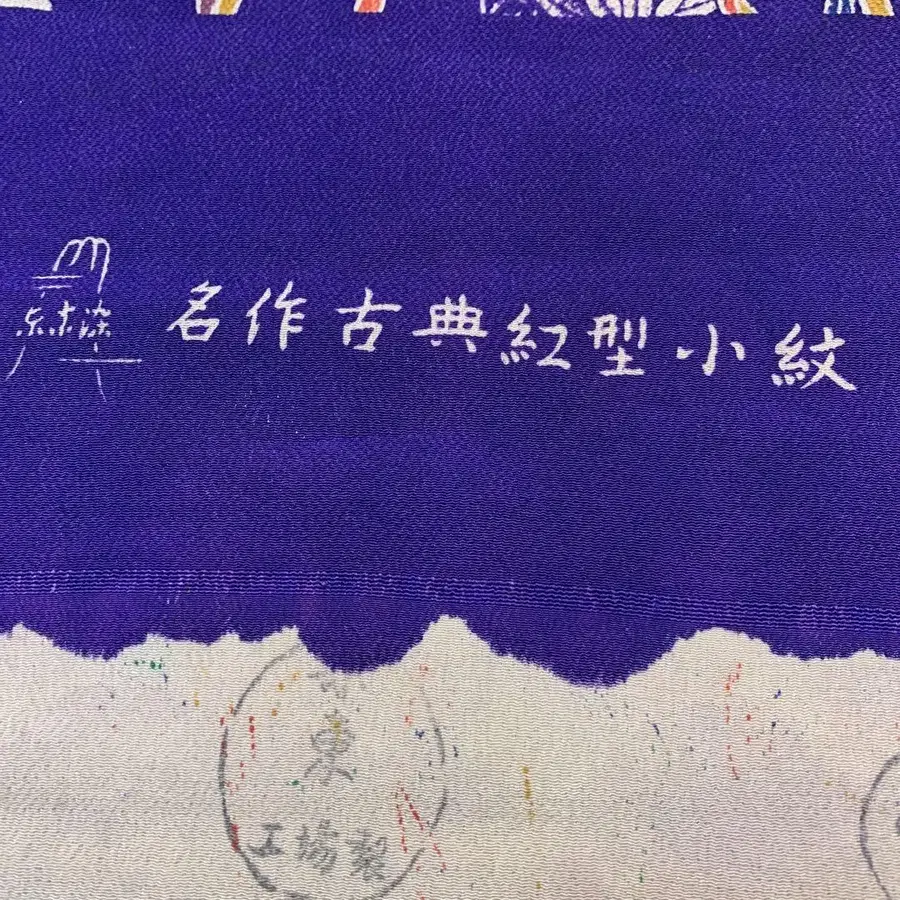 名作古典紅型小紋
東
工場製